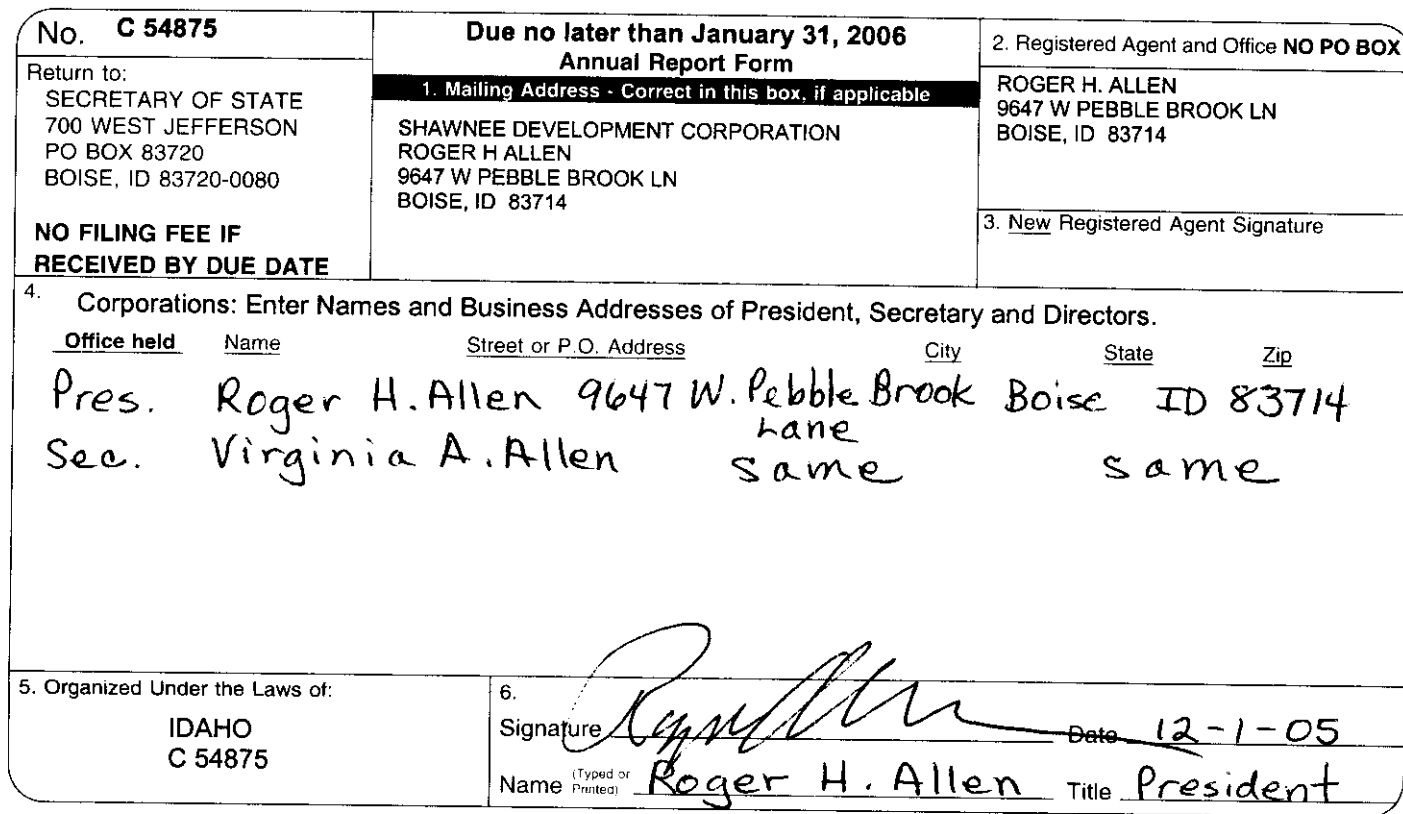 No. C 54875
Return to:
SECRETARY OF STATE
700 WEST JEFFERSON
PO BOX 83720
BOISE, ID 83720-0080
NO FILING FEE IF
RECEIVED BY DUE DATE
Due no later than January 31, 2006
Annual Report Form
1. Mailing Address - Correct in this box, if applicable
SHAWNEE DEVELOPMENT CORPORATION
ROGER H ALLEN
9647 W PEBBLE BROOK LN
BOISE, ID 83714
2. Registered Agent and Office NO PO BOX
ROGER H. ALLEN
9647 W PEBBLE BROOK LN
BOISE, ID 83714
3. New Registered Agent Signature
4. Corporations: Enter Names and Business Addresses of President, Secretary and Directors.
Office held Name Street or P.O. Address City State Zip
Pres. Roger H. Allen 9647 W. Pebble Brook Boise ID 83714
Lane
Sec. Virginia A. Allen same same
5. Organized Under the Laws of:
IDAHO
C 54875
6.
Signature Date 12-1-05
Name (Typed or Printed) Roger H. Allen Title President